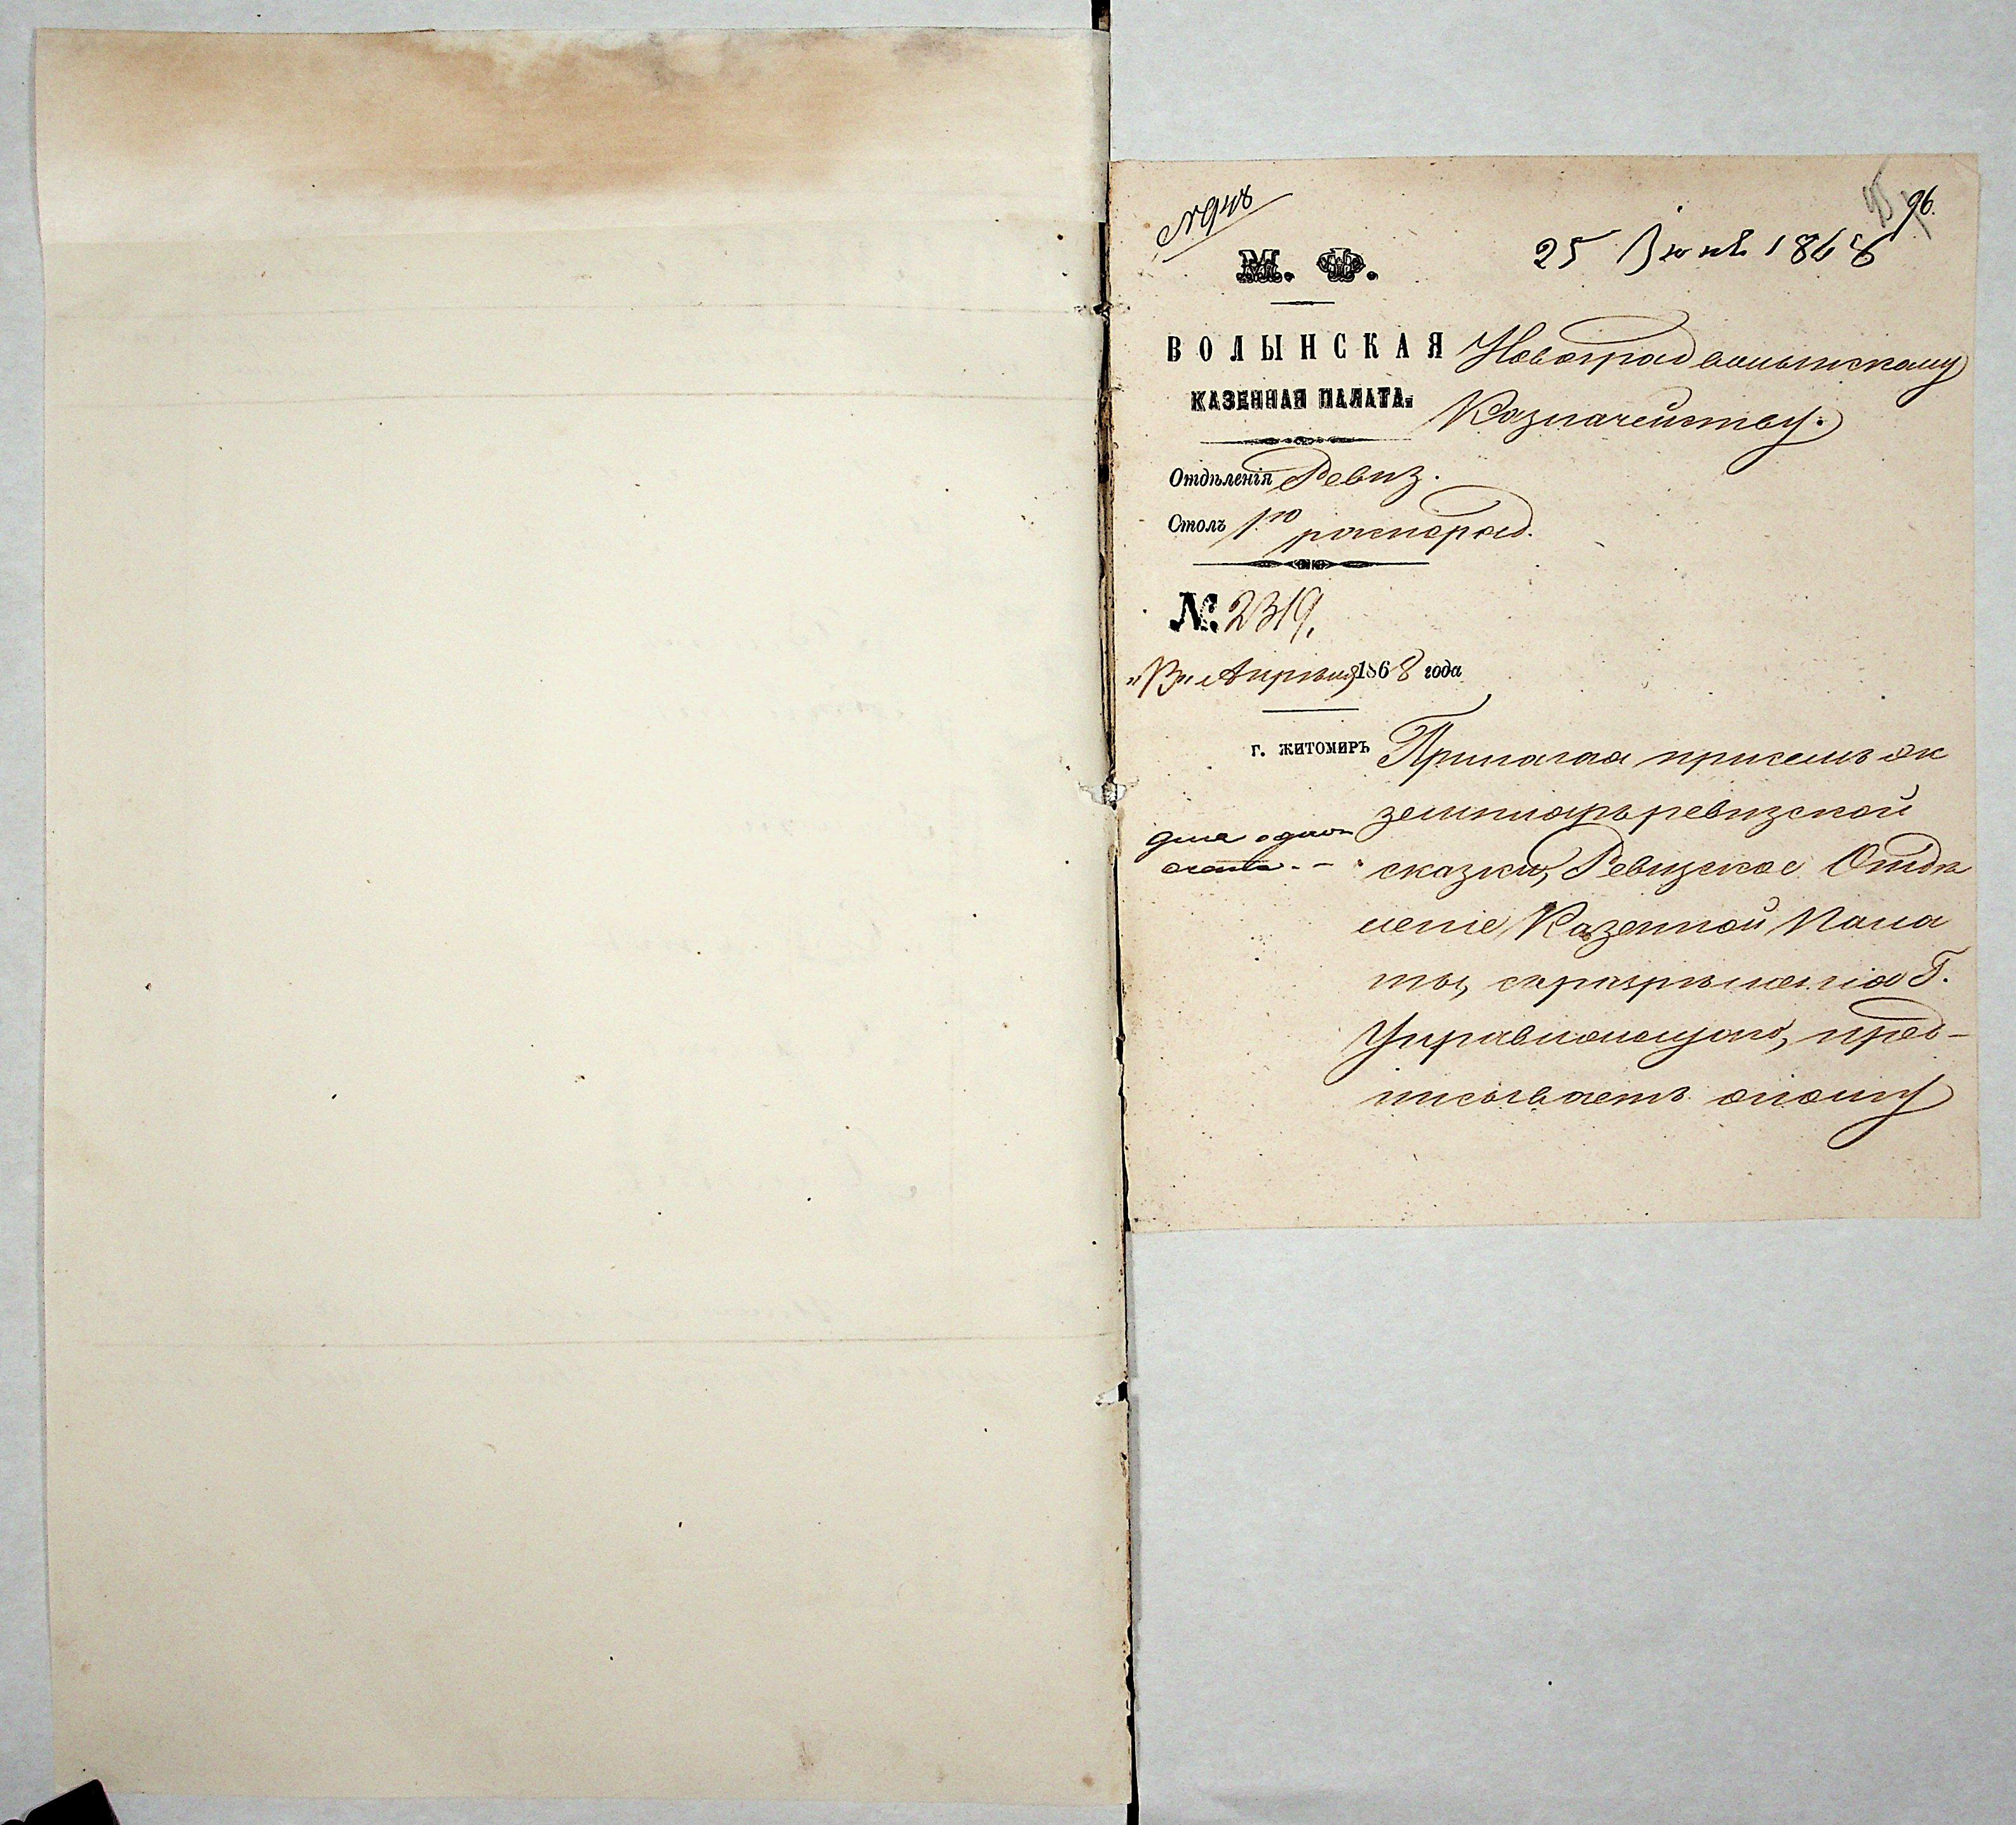 № 948
96.
25 Іюня 1868
М. Ф.
ВОЛЫНСКАЯ
КАЗЕННАЯ ПАЛАТА.
Новоградволынскому
Казначейству.
Отдѣленія Ревиз.
Столъ 1го распоряд.
№ 2319.
"13" Апрѣля 1868 года
г. ЖИТОМИРЪ
Прилагая присемъ эк
земпляръ ревизской
сказки, Ревизское Отдѣ
леніе Казенной Пала
ты, съ разрѣшенія Г.
Управляющаго, пред-
писываетъ оному